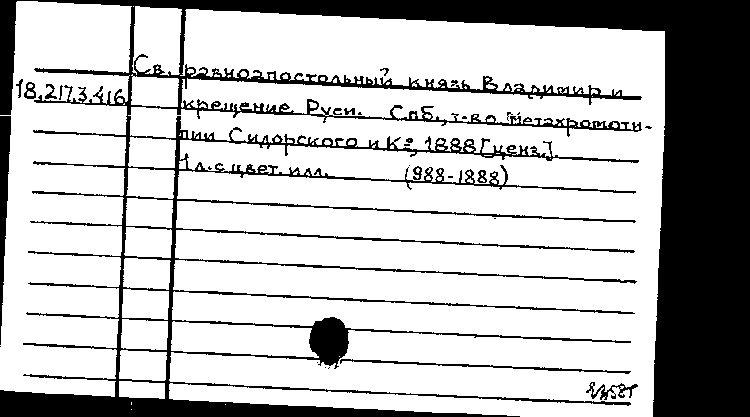 Св. равноапостольный князь Владимир и
18.217.3.416
крещение Руси. Спб., т-во метахромоти-
пии Сидорского и К°, 1888 [ценз.].
1 л. с цвет. илл. (988-1888)